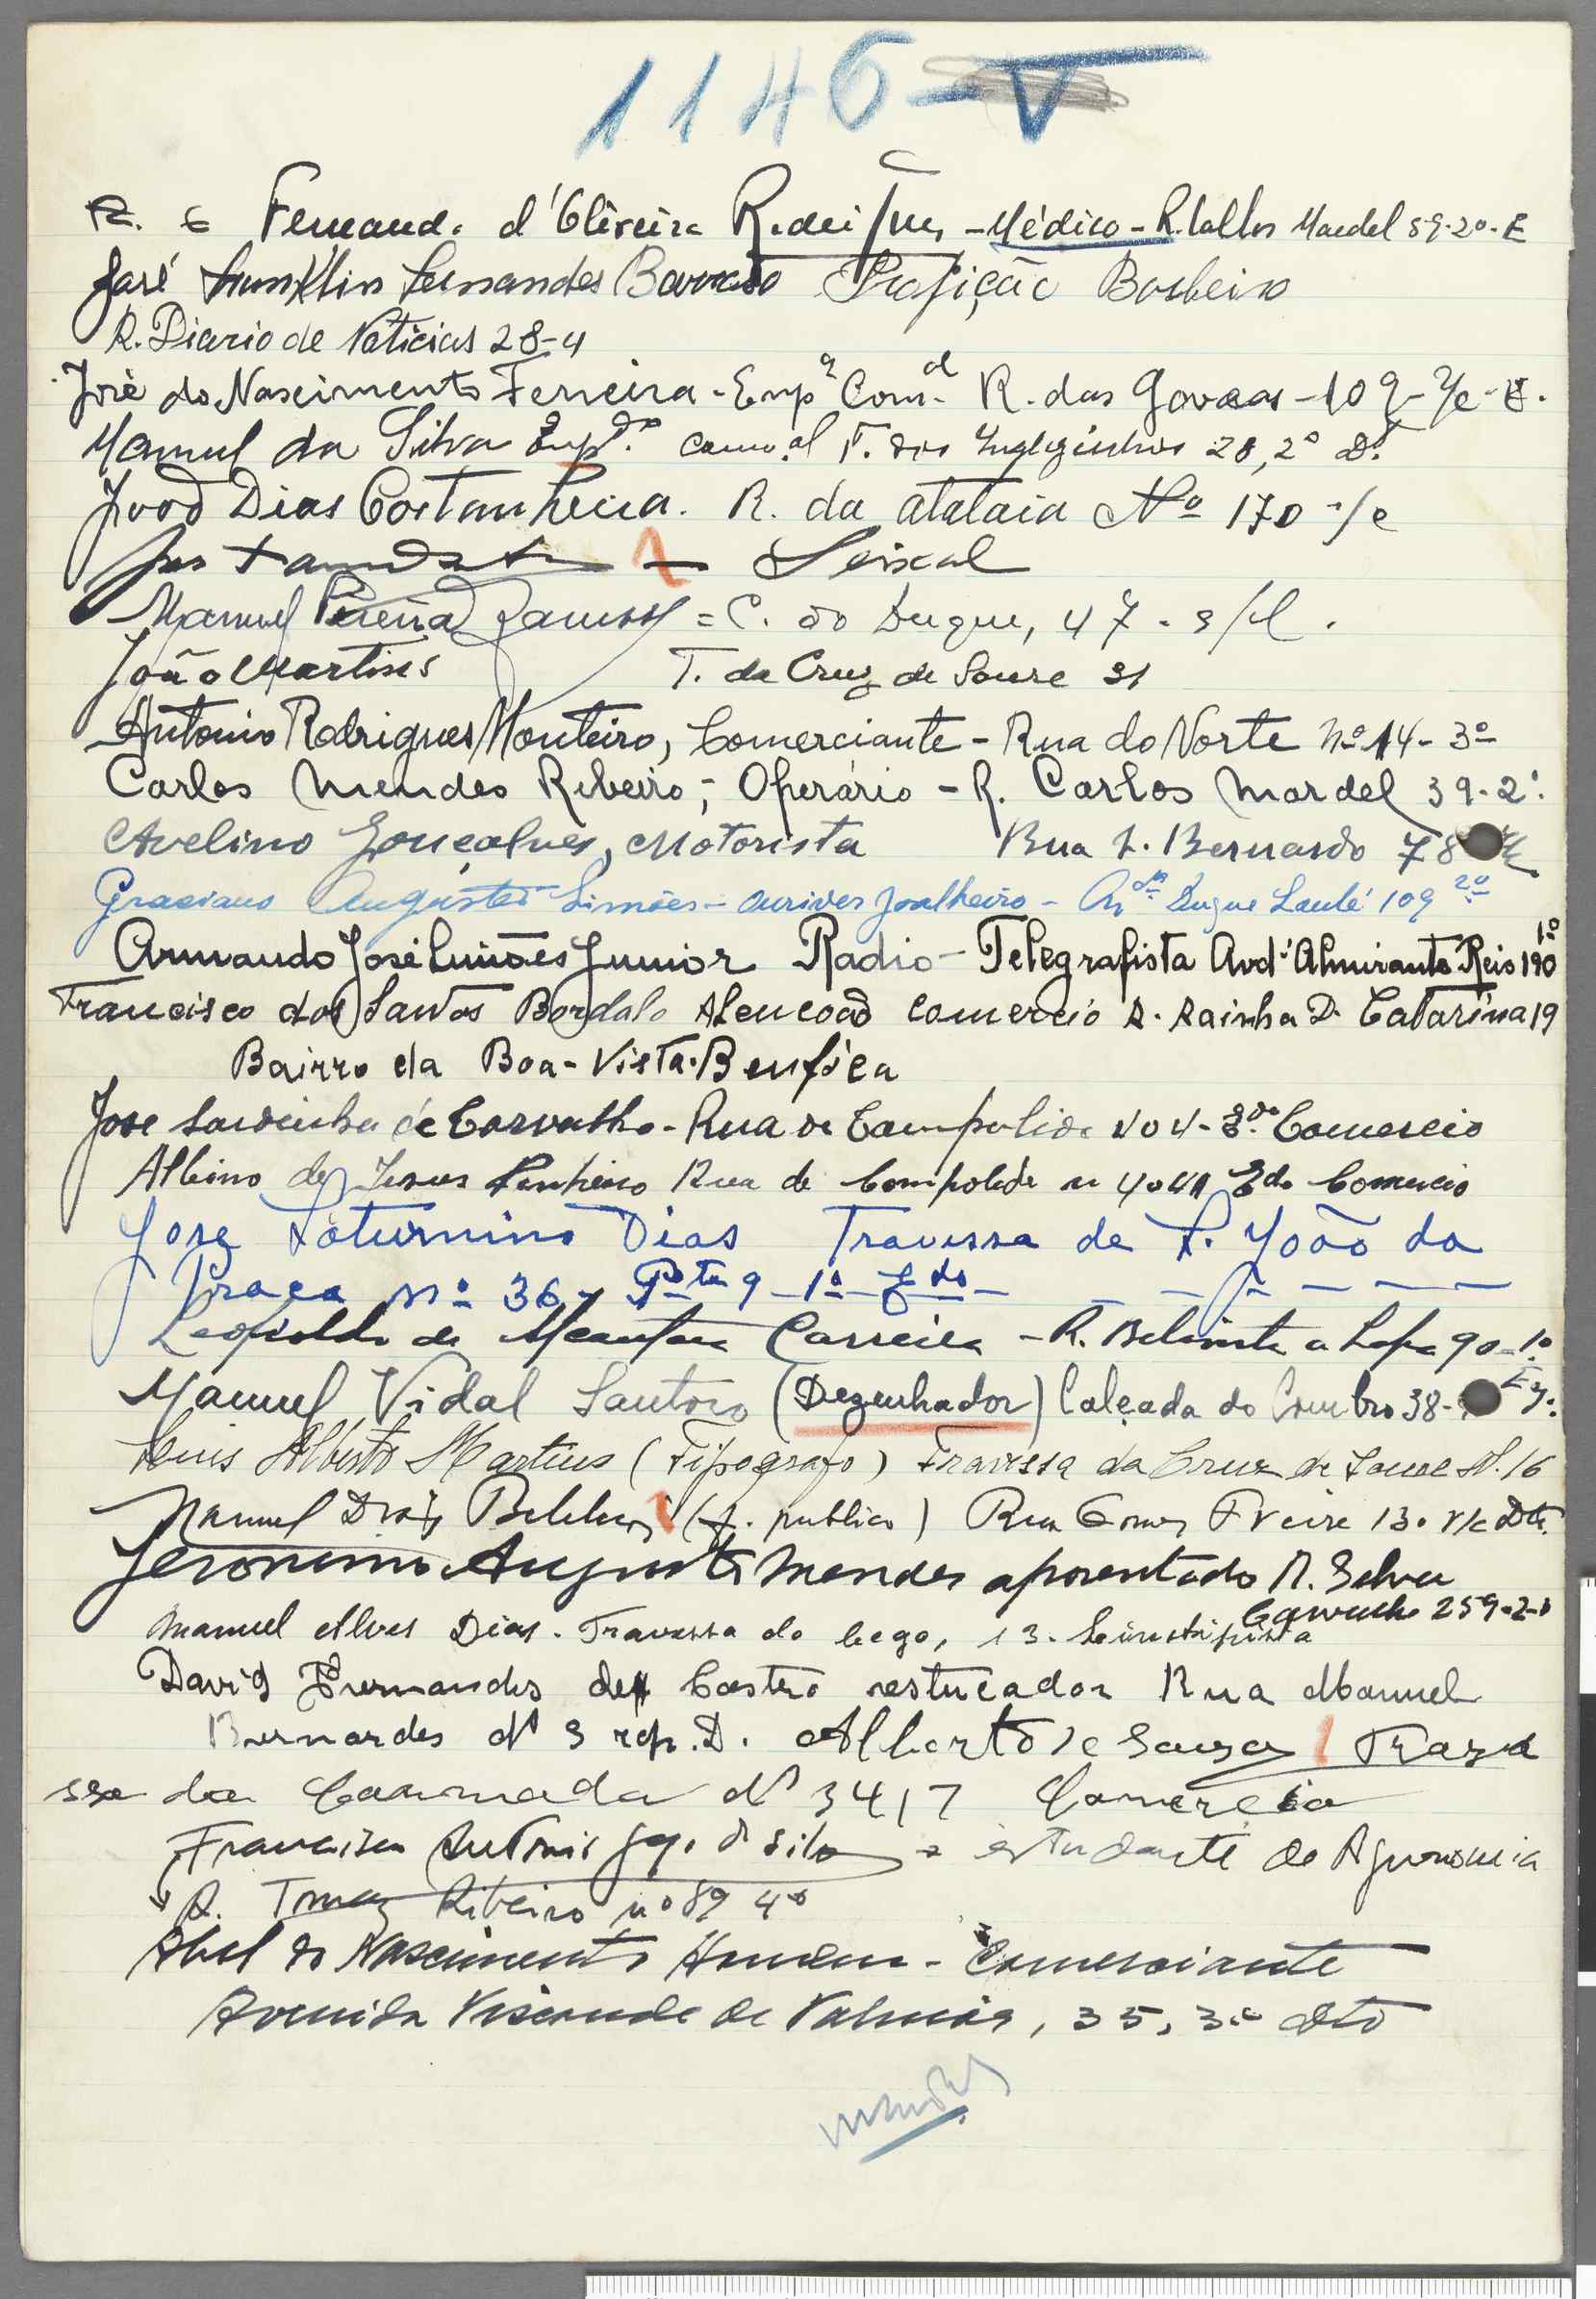 1146-V
Fernando d'Oliveira Rodrigues - Médico - R. Carlos Mardel 59-2º-E
José Franklin Fernandes Barroso Profição Barbeiro
R. Diario de Noticias 28-4
José do Nascimento Ferreira - Emp. Com. R. das Gaveas - 109-
Manuel da Silva Emp. Com.al T. dos Inglezinhos 28, 2º D.
João Dias Costanheira. R. da atalaia Nº 170
Seixal
Manuel Pereira = C. do Duque, 47
João Martins T. da Cruz de Soure 31
Antonio Rodrigues Monteiro, Comerciante - Rua do Norte nº 14-3º
Carlos Mendes Ribeiro, - Operário - R. Carlos Mardel 39-2º
Avelino Gonçalves, Motorista Rua S. Bernardo 78
Graciano Augusto Simões - ourives joalheiro - Duque Loulé 109 2º
Armando José Simões Junior Radio-Telegrafista Avd. Almirante Reis 190 1º
Francisco dos Santos Bordalo Comercio R. Rainha D. Catarina 19
Bairro da Boa-Vista. Benfica
Jose Sardinha de Carvalho - Rua de Campolide 404-3º Comercio
Albino de Jesus Rua de Compolide 404A Comercio
Jose Saturnino Dias Travessa de S. João da
Praça nº 36 - Pta 9 - 1º Edo
Leopoldo de Carreira - R. a Lapa 90-1º
Manuel Vidal Santoro (Dezenhador) Calçada do Combro 38- Ey.
Luis Alberto Martins (Tipografo) Travessa da Cruz de Soure N. 16
Manuel (f. publico) Rua Gomes Freire 13. r/c Dto.
Jeronimo Augusto Mendes aposentado R. Silva
Carvalho 259-2-º
Manuel Alves Dias. Travessa do Cego, 13.
David Fernandes de Castro estucador Rua Manuel
Bernardes Nº 3 D. Alberto de Souza Trave
ssa da Nº 34, 7 Comercio
Francisco Antonio da Silva = estudante de Agronomia
R. Tomaz Ribeiro nº 89 4º
Abel do Nascimento Homem - Comerciante
Avenida Visconde de Valmor, 35, 3º dto